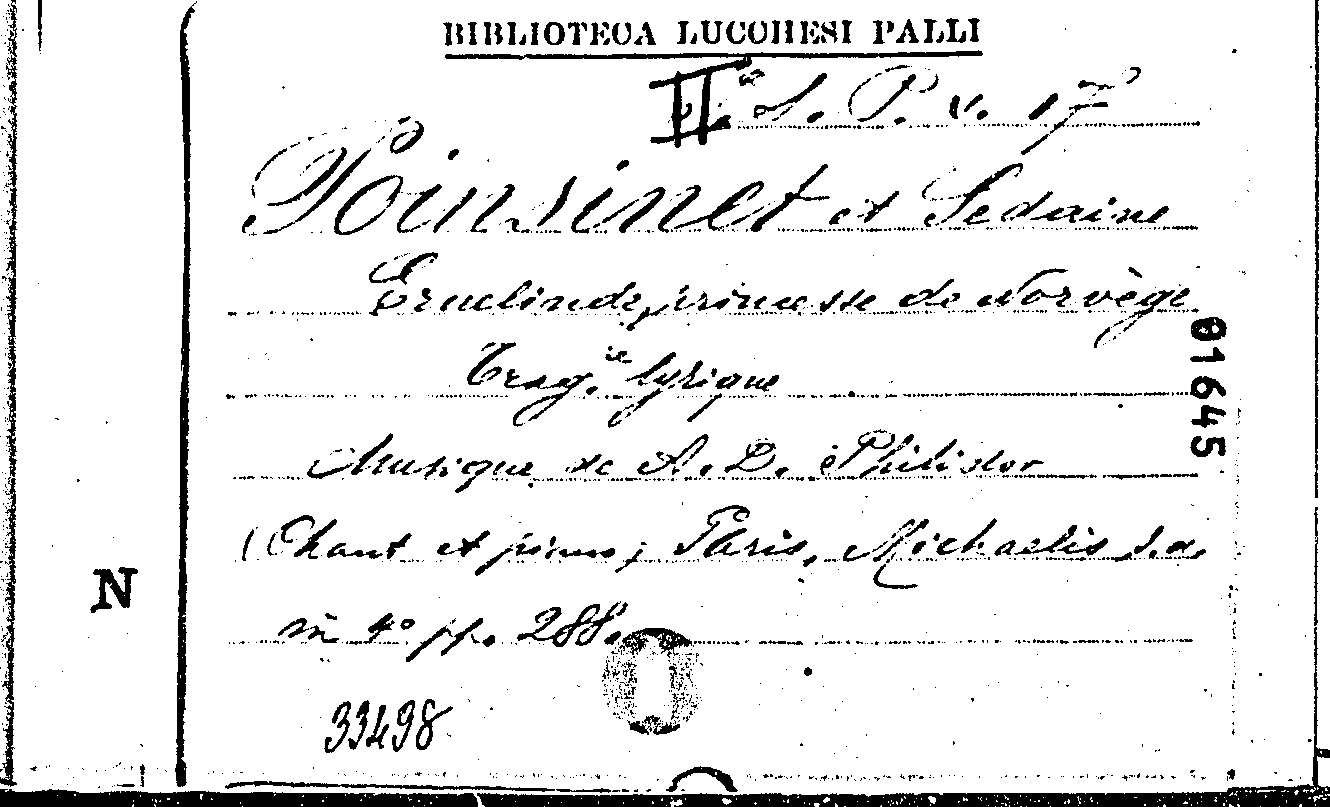 BIBLIOTECA LUCCHESI PALLI
IIª S. P. v. 17
Poinsinet et Sedaine
Ernelinde, princesse de Norvège
Trag.ie lyrique
Musique de A. D. Philidor
(Chant et piano; Paris, Michaelis s.a.
in 4° pp. 288.
33498
N
01645